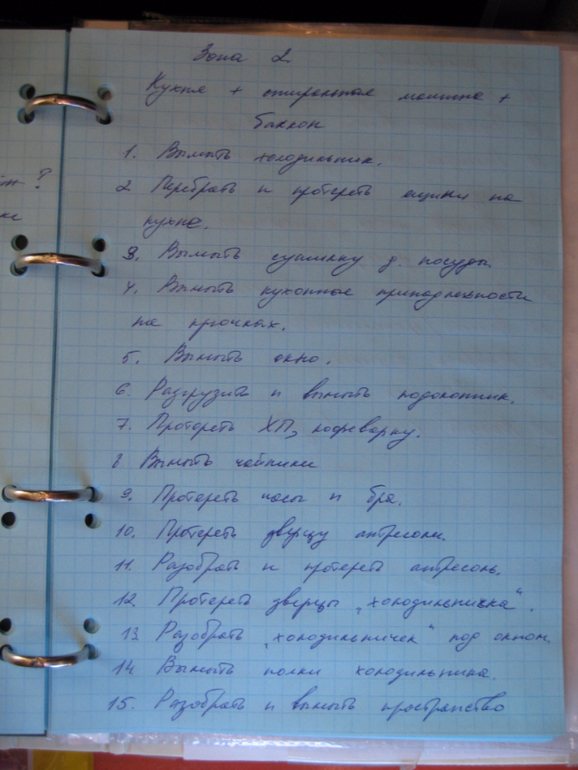 Зона 2
Кухня + стиральная машина +
балкон
1. Вымыть холодильник.
2 Перебрать и протереть ящики на
кухне.
3. Вымыть сушилку д. посуды.
4. Вымыть кухонные принадлежности
на крючках.
5. Вымыть окно.
6. Разгрузить и вымыть подоконник.
7. Протереть ХП, кофеварку.
8 Вымыть чайники
9. Протереть часы и бра.
10. Протереть дверцу антресоли.
11. Разобрать и протереть антресоль.
12. Протереть дверцы „холодильничка“.
13. Разобрать „холодильничек“ под окном
14. Вымыть полки холодильника.
15. Разобрать и вымыть пространство